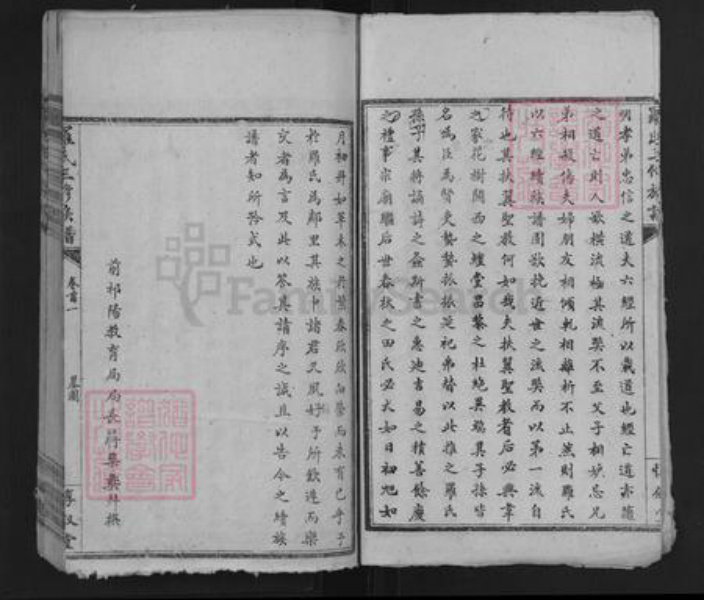 明孝弟忠信之道夫六經所以載道也經亡道亦隨
之道亡則人欲橫流極其流獘不至父子相妒忌兄
弟相殘傷夫婦朋友相傾軋相離析不止然則羅氏
以六經續族譜固欲挽近世之流獘而以第一流自
待也其扶翼聖教何如哉夫扶翼聖教者后必興韋
之家花樹關西之鱣堂昌黎之杜絕異端其子孫皆
名為臣為賢吏蟄蟄振振延祀弗替以此推之羅氏
孫子其將誦詩之螽斯書之惠迪言易之積善餘慶
之禮事宗廟繼后世春秋之田氏必大如日初旭如
月初升如草木之芽蘗春欣欣向榮而未有已乎予
於羅氏為鄰里其族中諸君又夙好予所歡迎而樂
交者為言及此以答其請序之誠且以告今之續族
譜者知所矜式也
前祁陽教育局局長蔣 撰
羅氏三修族譜
卷首一
墓圖
敦敘堂
FamilySearch